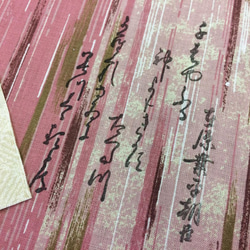 在原業平朝臣
千はやふる
神よもきかす
たつた川
からくれなゐに
水くゝるとは